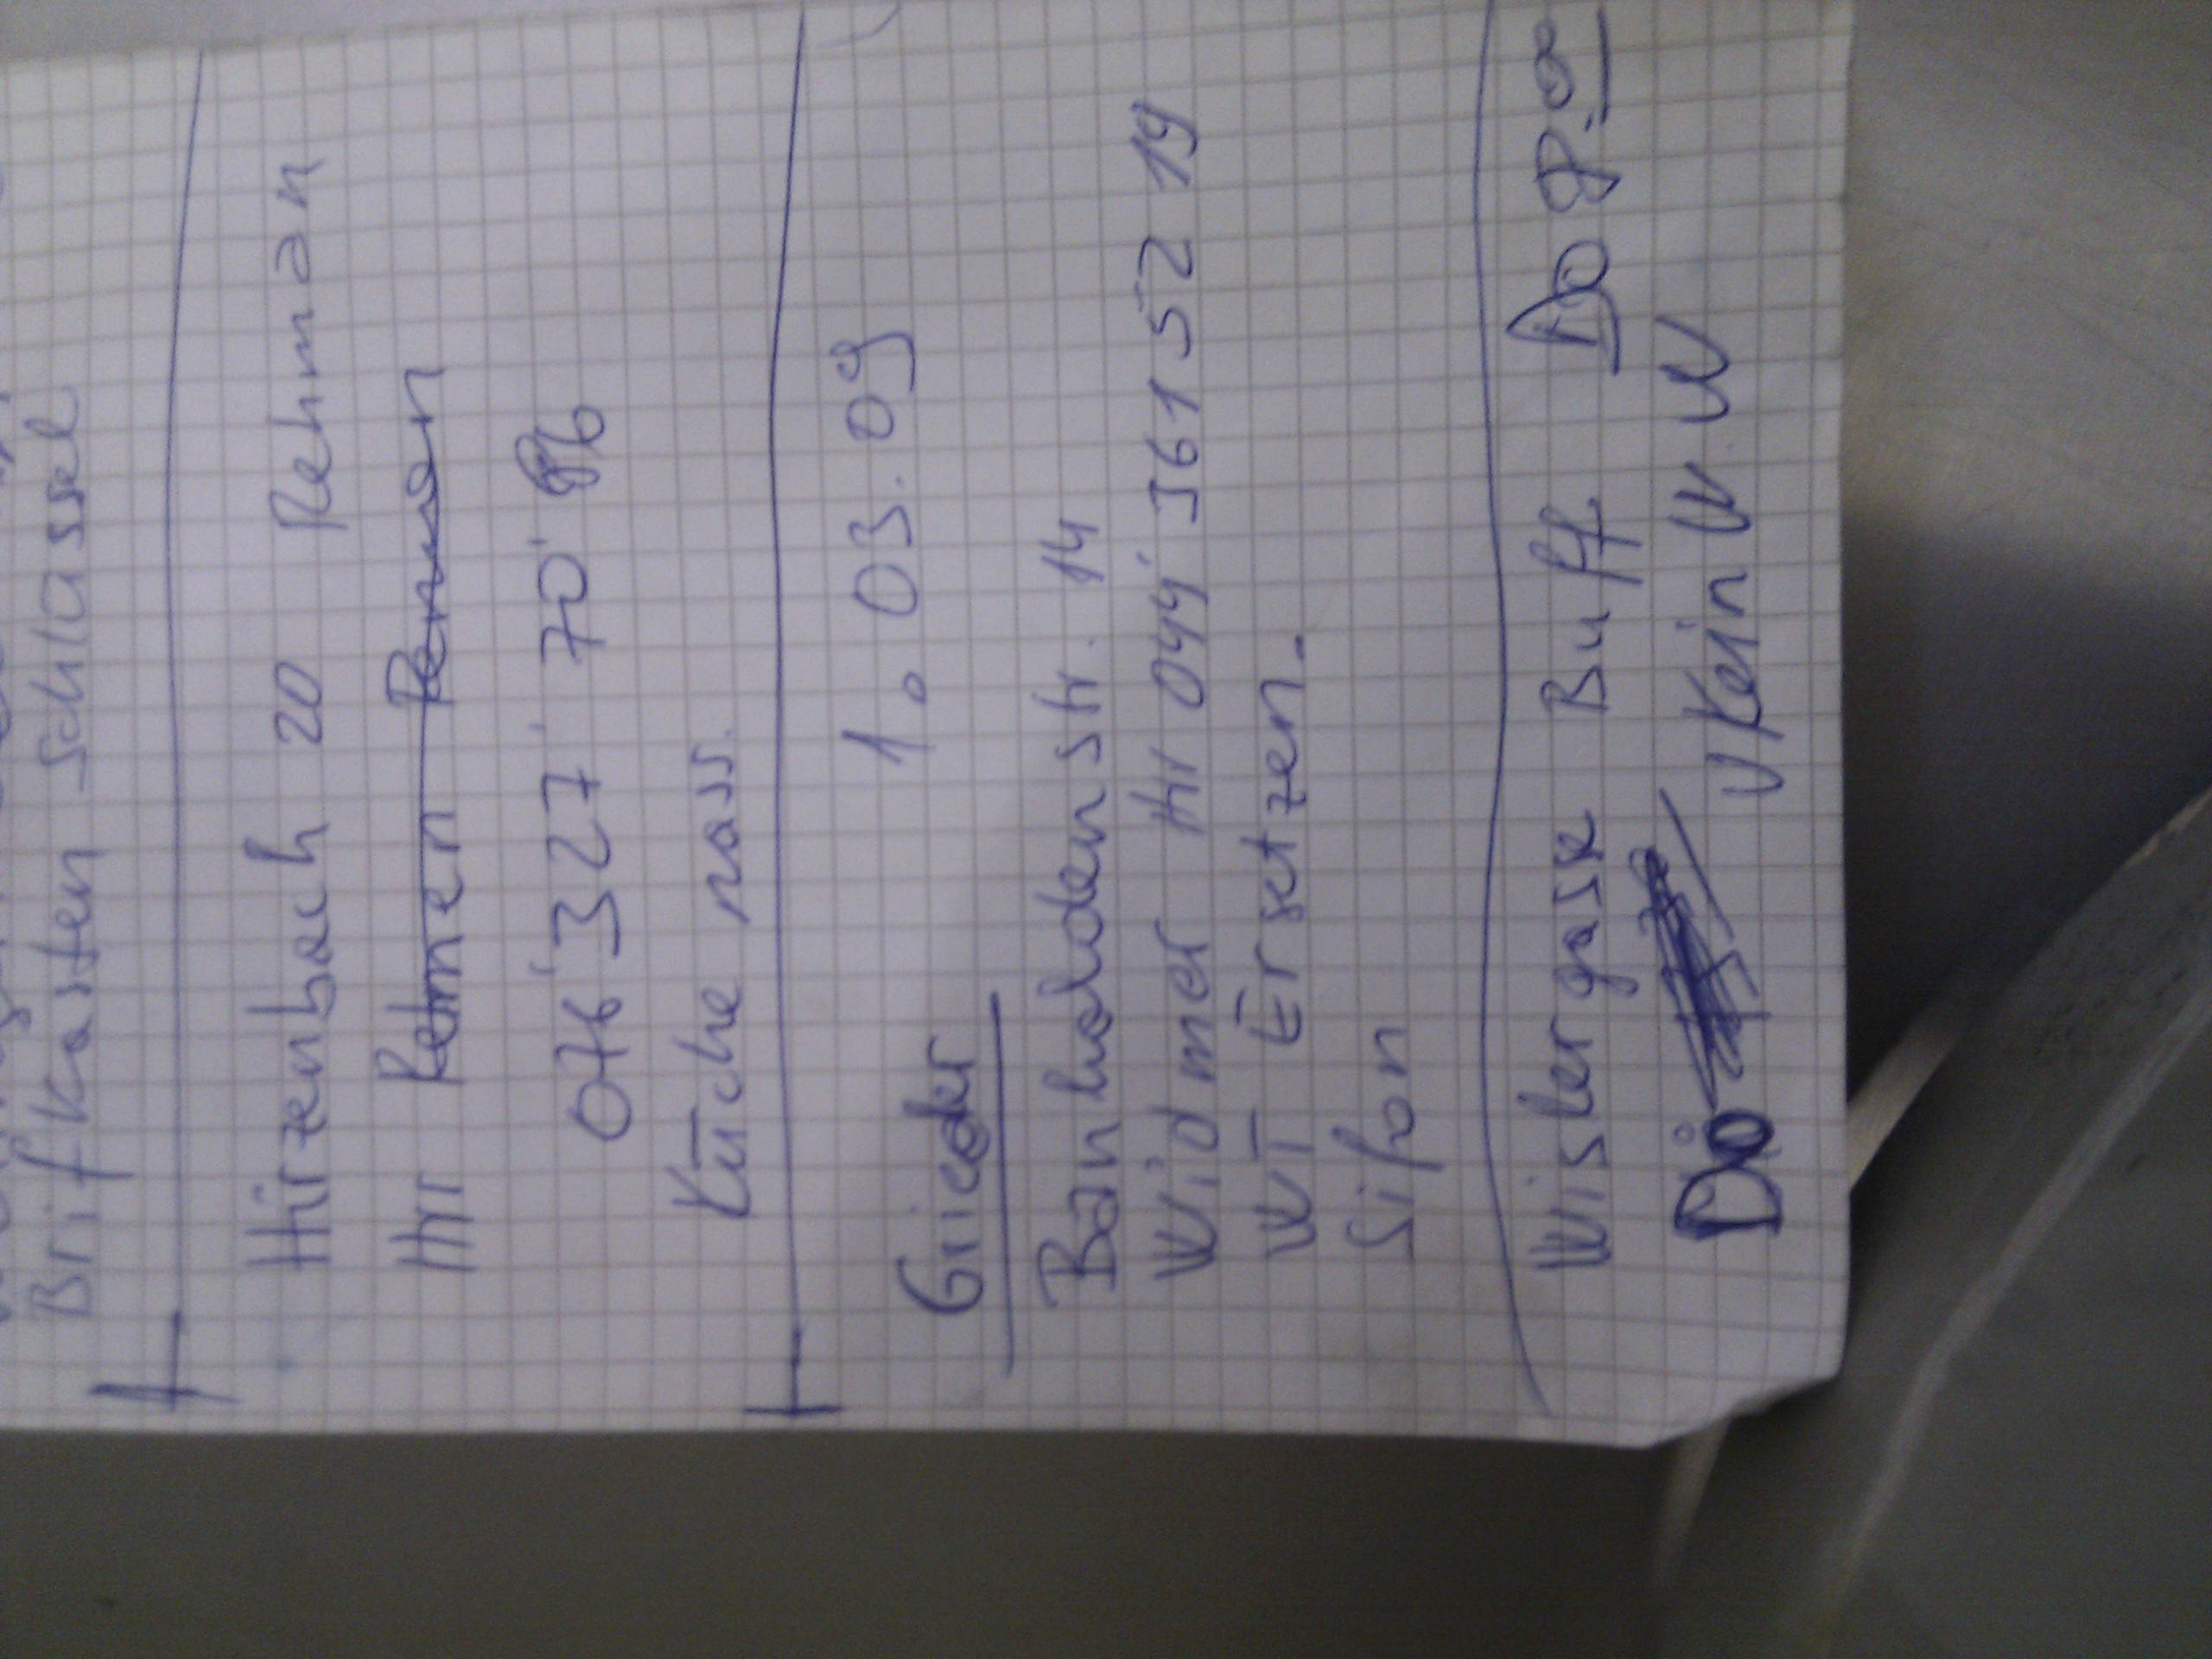 Brifkasten schlassel
Hirzenbach 20 Rehman
Hr Rehmen Remman
076'327'70'86
Küche nass.
1. 03. 09
Grieder
Bänhaldenstr. 14
Widmer Hr 044' 361 52 19
WT Ersetzen.
Sifon
Wislergase Buff Do 8:00
Do Kein W.W